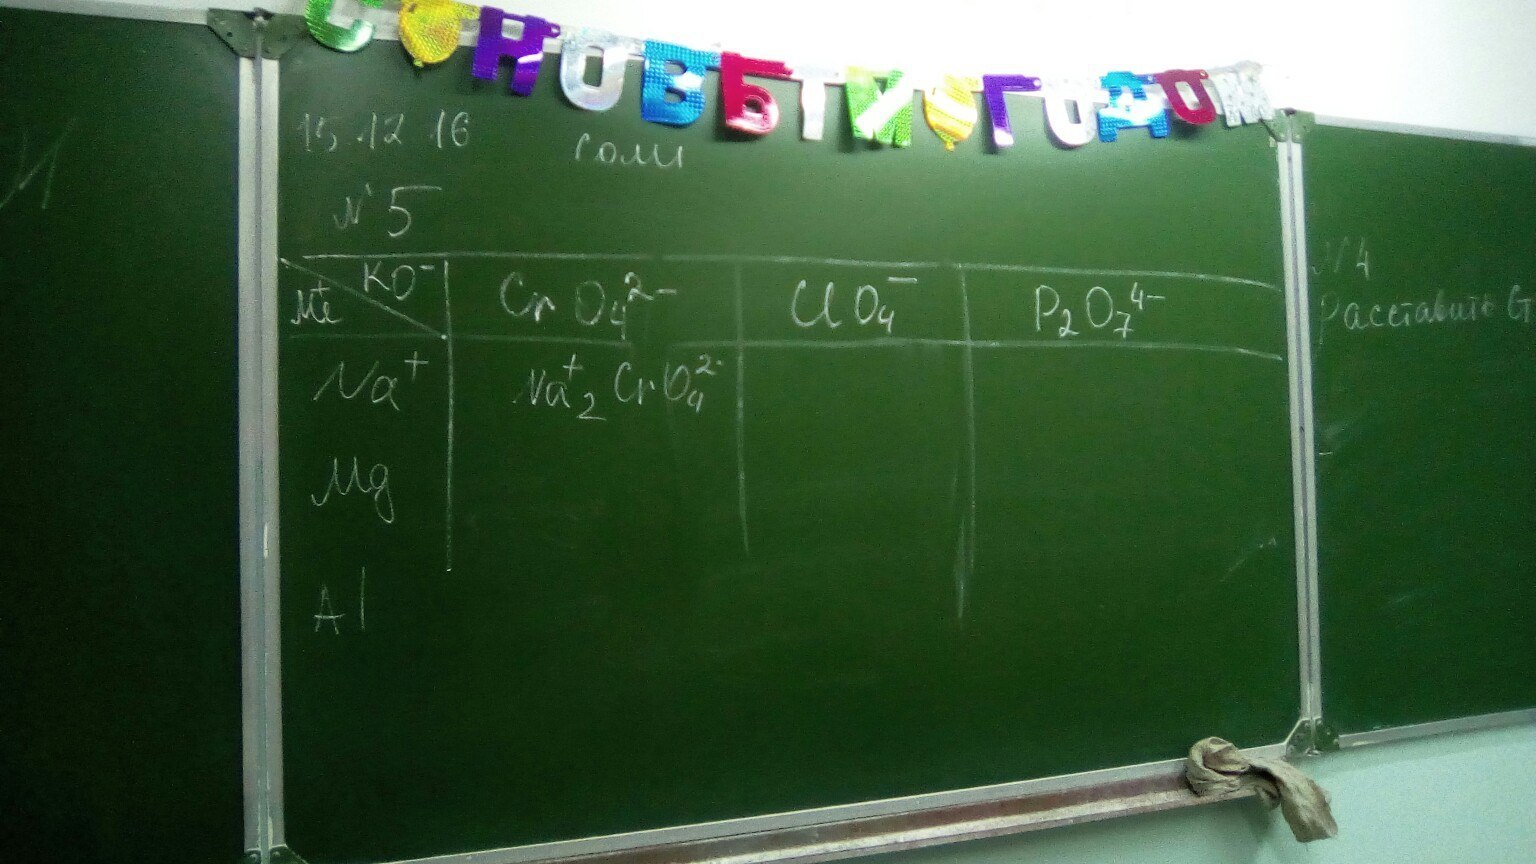 С НОВЫМ ГОДОМ
15.12 16
соли
№5
KO⁻
Me⁺
CrO₄²⁻
ClO₄⁻
P₂O₇⁴⁻
Na⁺
Na⁺₂CrO₄²⁻
Mg
Al
№4
Расставить